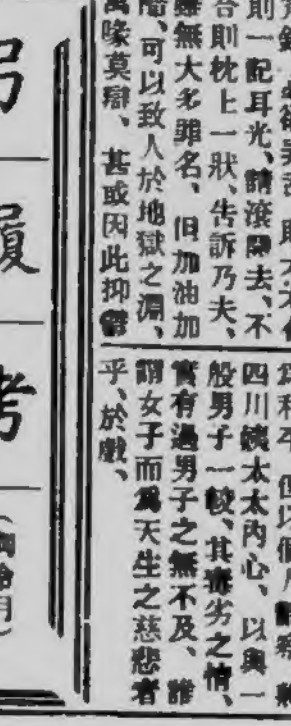 則一記耳光、請滾開去、不
合則枕上一狀、告訴乃夫、
雖無大多罪名、但加油加
醋、可以致人於地獄之淵、
萬喙莫辯、甚或因此抑鬱
四川姨太太內心、以與一
般男子一較、其毒劣之情、
實有過男子之無不及、誰
謂女子而爲天生之慈悲者
乎、於戲、
弓
履
考